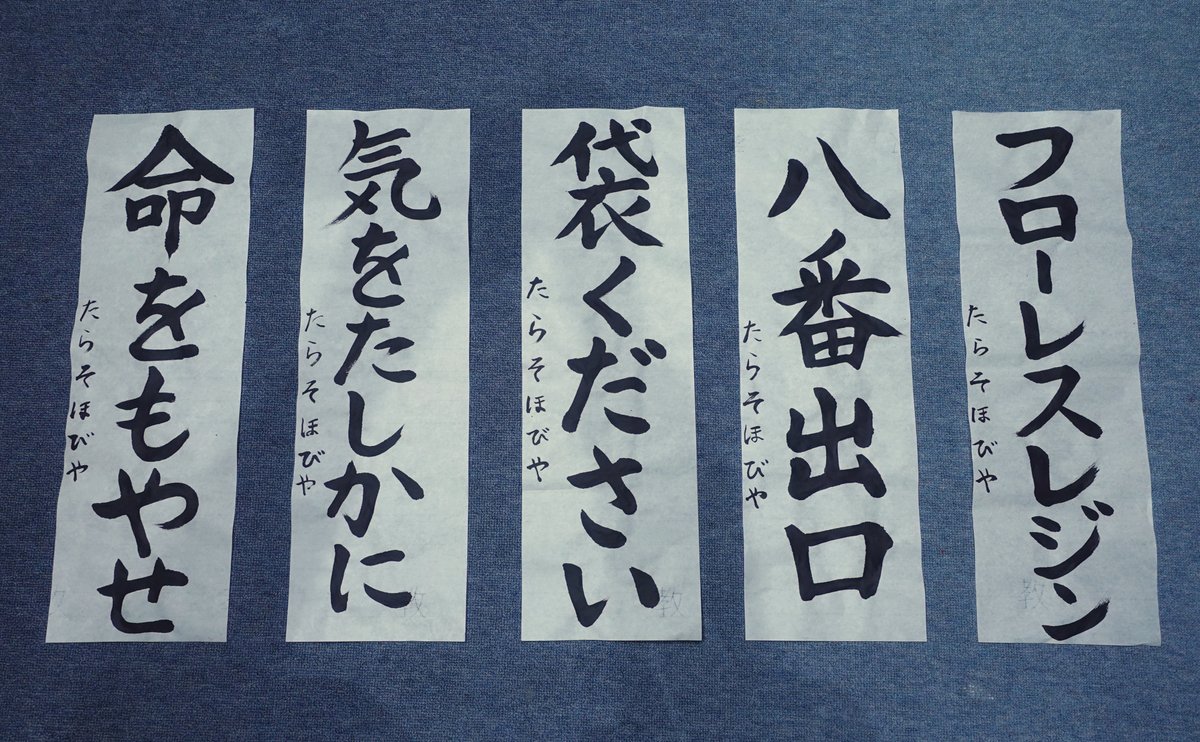 フローレスレジン
たらそほびや
八番出口
たらそほびや
袋ください
たらそほびや
気をたしかに
たらそほびや
命をもやせ
たらそほびや
教
教
教